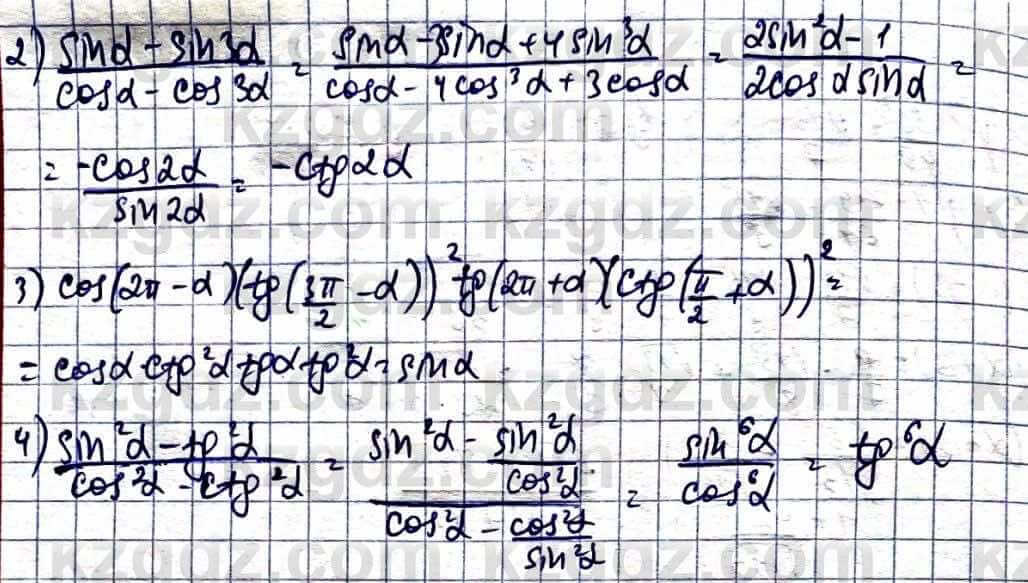 2) (sinα - sin3α)/(cosα - cos3α) = (sinα - 3sinα + 4sin³α)/(cosα - 4cos³α + 3cosα) = (2sin²α - 1)/(2cosα sinα) =
= (-cos2α)/(sin2α) = -ctg2α
3) cos(2π - α)(tg(3π/2 - α))² tg(2π + α)(ctg(π/2 + α))² =
= cosα ctg²α tgα tg²α = sinα
4) (sin²α - tg²α)/(cos²α - ctg²α) = (sin²α - sin²α/cos²α)/(cos²α - cos²α/sin²α) = sin⁶α/cos⁶α = tg⁶α
kzgdz.com